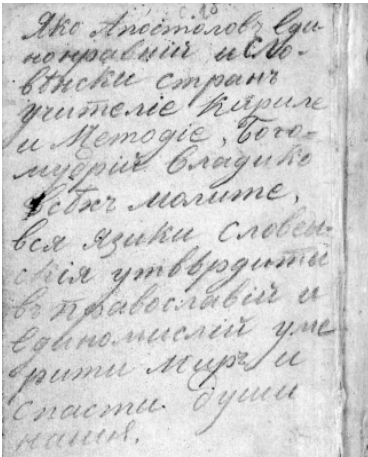 Яко Апостоловъ Еди-
нонравнiи и сло-
вѣнски странъ
учителiе Кириле
и Методiе, Бого-
мудрiй Владико
всѣхъ молите,
вся язики словен-
скiя утвврдити
въ православiй и
единомислiй уме
рити миръ и
спасти души
нашя.